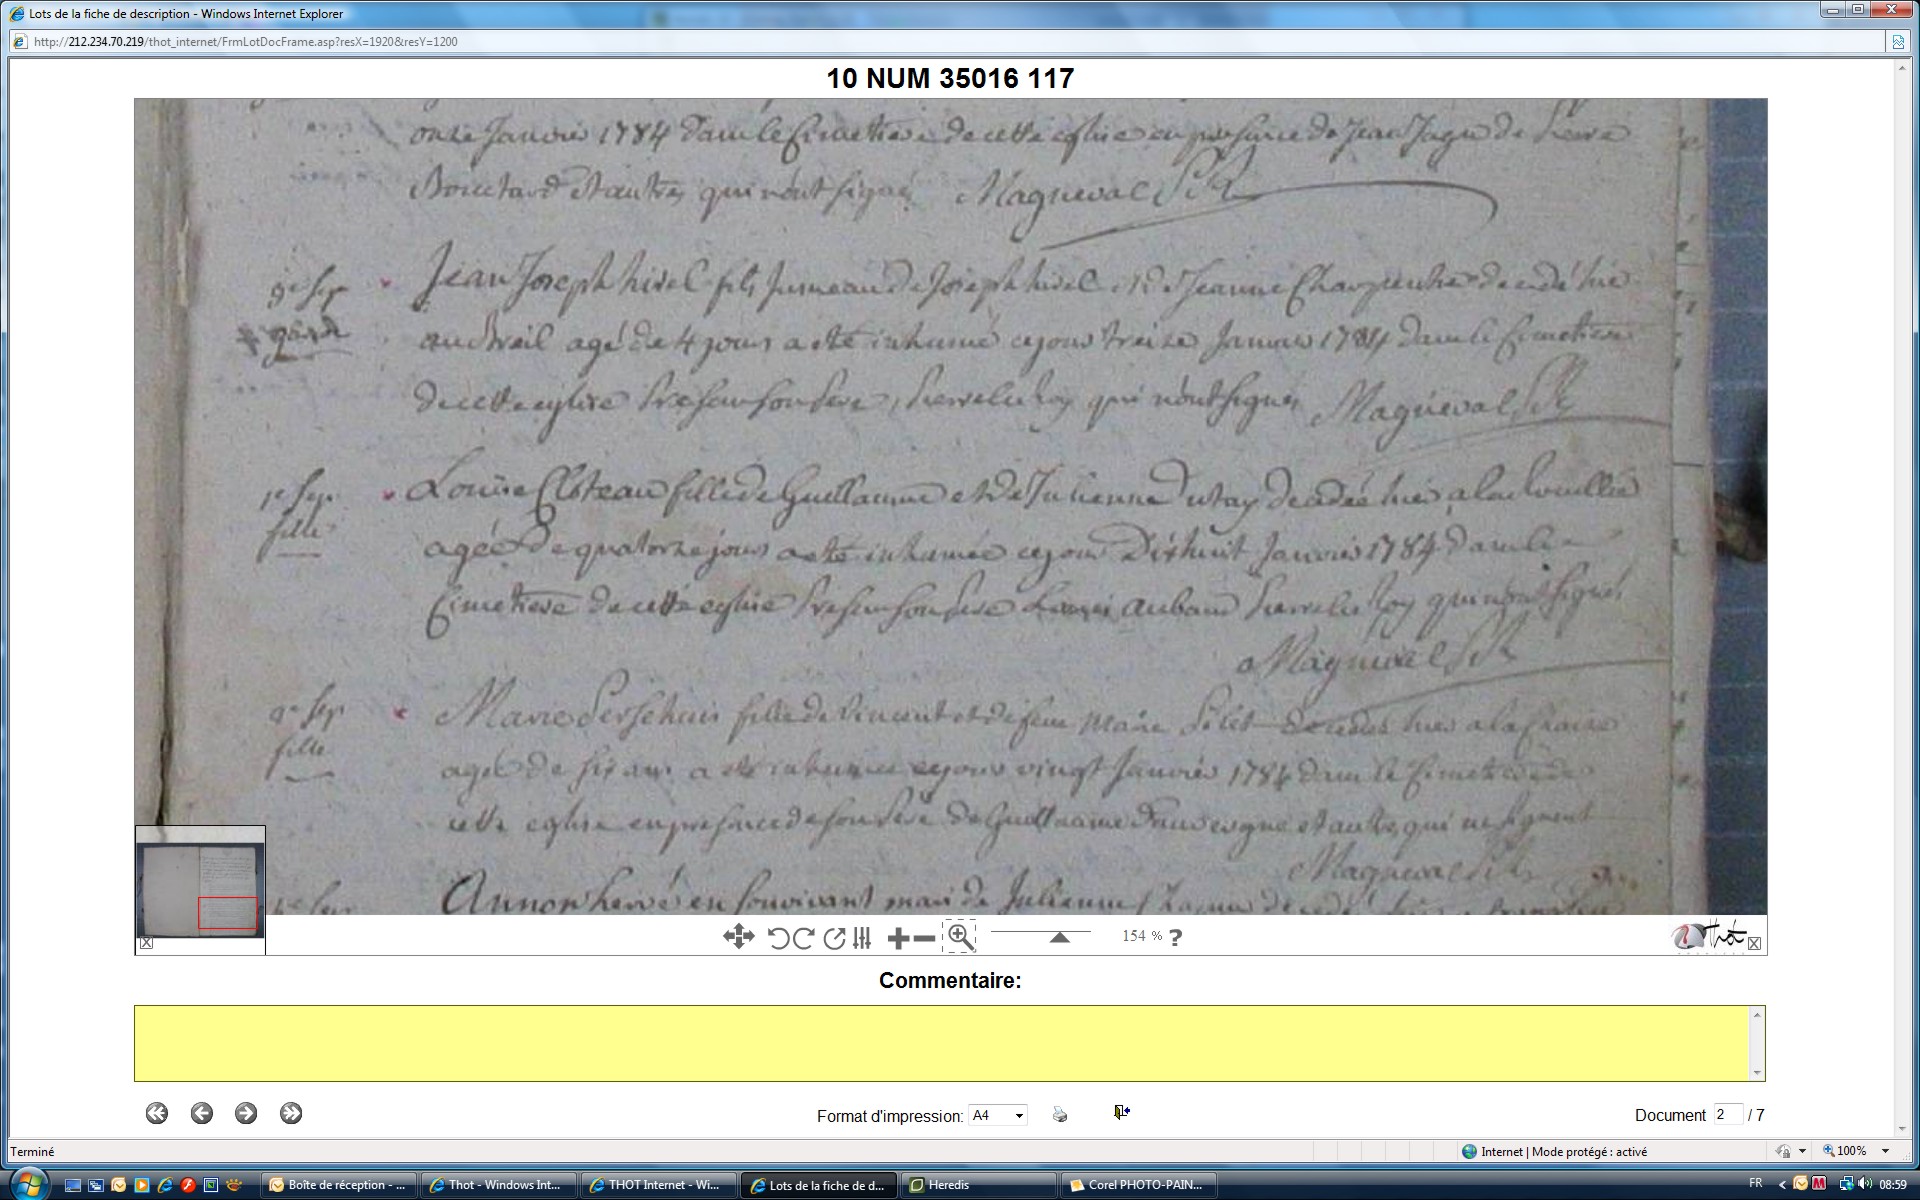 Lots de la fiche de description - Windows Internet Explorer
http://212.234.70.219/thot_internet/FrmLotDocFrame.asp?resX=1920&resY=1200
10 NUM 35016 117
onze Janvier 1784 dans le Cimetiere de cette eglise en presence de Jean de Pierre
et autres qui n'ont signé Magneval
9e Sep
Jean Joseph hivel fils Jumeau de Joseph hivel et de Jeanne Charpentier decedé hier
au Breil agé de 4 jours a été inhumé ce jour treize Janvier 1784 dans le Cimetiere
de cette eglise son Pere, Pierre le Roy qui n'ont signés Magneval
1e Sep
fille
Louise Cloteau fille de Guillaume et de Julienne decedée hier a la
agée de quatorze jours a été inhumée ce jour Dixhuit Janvier 1784 dans le
Cimetiere de cette eglise son Pere Aubaud Pierre le Roy qui n'ont signés
Magneval
9e Sep
fille
Marie fille de Vincent et de feue Marie decedee hier a la
agée de six ans a été inhumée ce jour vingt Janvier 1784 dans le Cimetiere de
cette eglise en presence de son Pere de Guillaume Dauvergne et autres qui ne signent
Magneval
hervé en Souvivant mari de Julienne
154 % ?
Thot
Commentaire:
Format d'impression: A4
Document 2 / 7
Terminé
Internet | Mode protégé : activé
100%
Boîte de réception - ...
Thot - Windows Int...
THOT Internet - Wi...
Lots de la fiche de d...
Heredis
Corel PHOTO-PAIN...
FR
08:59